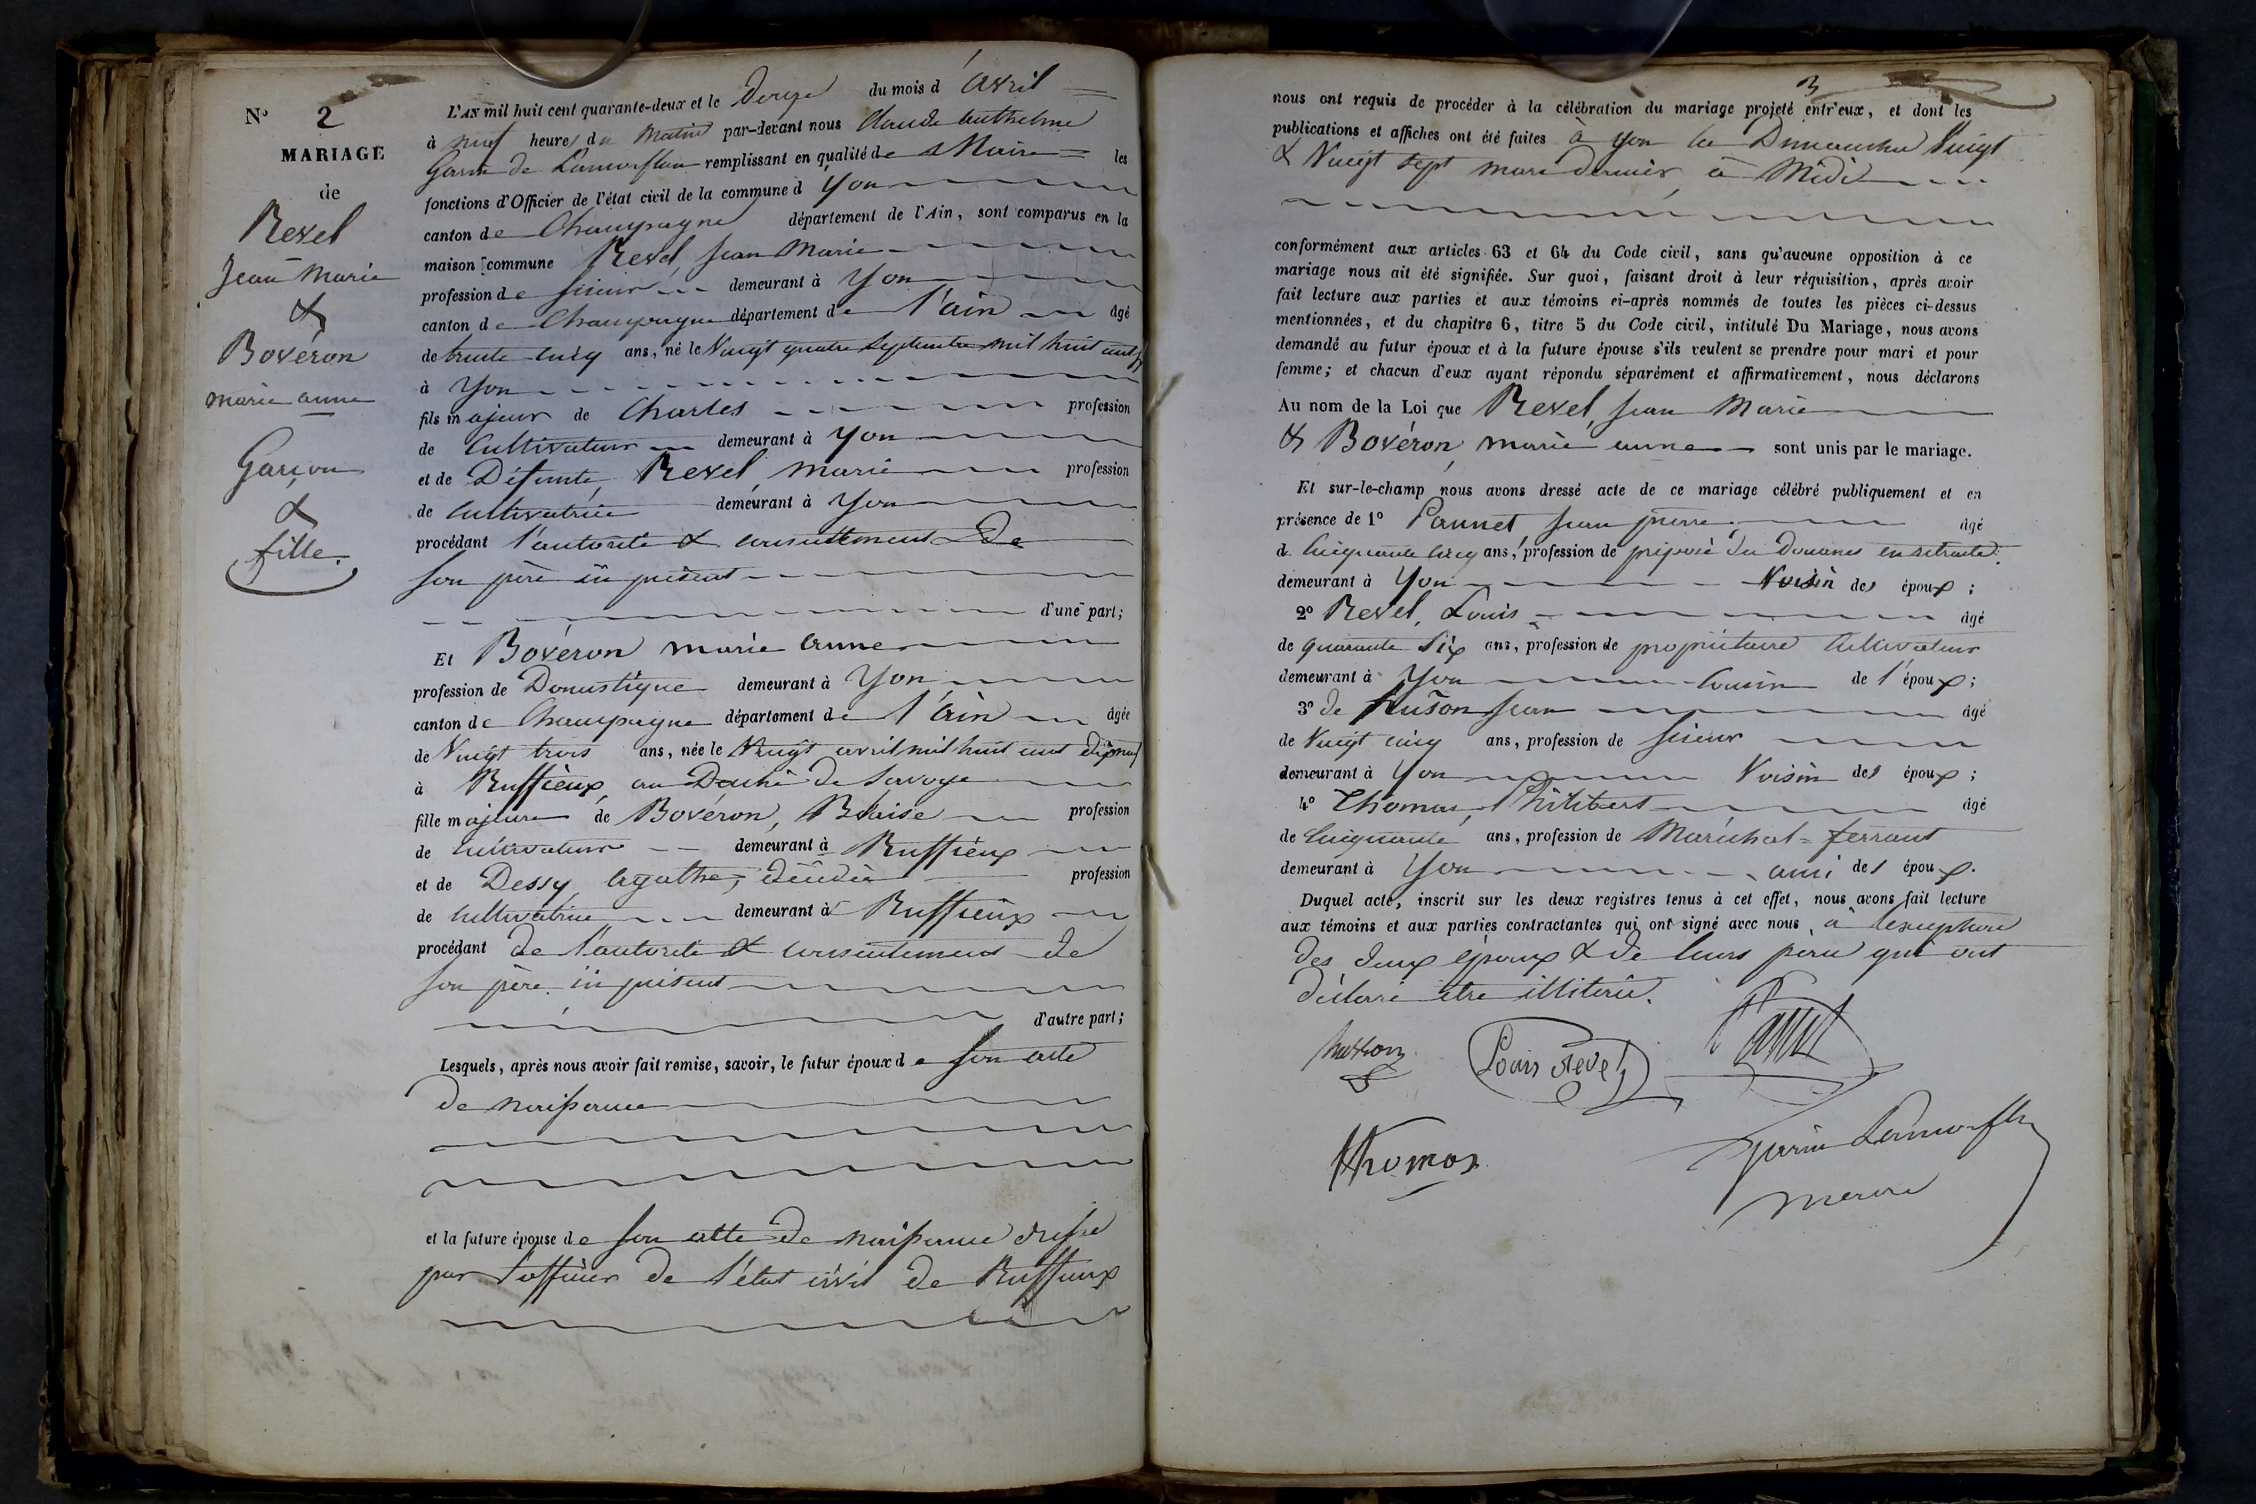 N° 2
MARIAGE
de
Revel
Jean Marie
&
Bovéron
marie anne
Garçon
&
fille.
L'AN mil huit cent quarante-deux et le douze du mois d'avril
à neuf heures du matin par-devant nous Claude Anthelme
de remplissant en qualité de Maire les
fonctions d'Officier de l'état civil de la commune d'Yon
canton de Champagne département de l'Ain, sont comparus en la
maison commune Revel, Jean Marie
profession de scieur demeurant à Yon
canton de Champagne département de l'ain âgé
de trente cinq ans, né le Vingt quatre septembre mil huit cent
à Yon
fils majeur de Charles profession
de Cultivateur demeurant à Yon
et de Défunte, Revel, marie profession
de Cultivatrice demeurant à Yon
procédant l'autorité & consentement de
son père ici présent
d'une part;
Et Bovéron marie anne
profession de Domestique demeurant à Yon
canton de Champagne département de l'ain âgée
de Vingt trois ans, née le Vingt avril mil huit cent dixneuf
à Ruffieux, au Duché de Savoye
fille majeure de Bovéron, Blaise profession
de cultivateur demeurant à Ruffieux
et de Dessy, agathe, décédée profession
de Cultivatrice demeurant à Ruffieux
procédant de l'autorité & consentement de
son père ici présent
d'autre part;
Lesquels, après nous avoir fait remise, savoir, le futur époux de son acte
de naissance
et la future épouse de son acte de naissance dressé
par l'officier de l'état civil de Ruffieux
3
nous ont requis de procéder à la célébration du mariage projeté entr'eux, et dont les
publications et affiches ont été faites à Yon les Dimanches Vingt
& Vingt sept mars dernier à Midi
conformément aux articles 63 et 64 du Code civil, sans qu'aucune opposition à ce
mariage nous ait été signifiée. Sur quoi, faisant droit à leur réquisition, après avoir
fait lecture aux parties et aux témoins ci-après nommés de toutes les pièces ci-dessus
mentionnées, et du chapitre 6, titre 5 du Code civil, intitulé Du Mariage, nous avons
demandé au futur époux et à la future épouse s'ils veulent se prendre pour mari et pour
femme; et chacun d'eux ayant répondu séparément et affirmativement, nous déclarons
Au nom de la Loi que Revel, Jean Marie
& Bovéron, marie anne sont unis par le mariage.
Et sur-le-champ nous avons dressé acte de ce mariage célébré publiquement et en
présence de 1° Pannet Jean pierre âgé
de Cinquante cinq ans, profession de préposé des Douanes en retraite
demeurant à Yon Voisin des époux;
2° Revel, Louis âgé
de quarante six ans, profession de propriétaire Cultivateur
demeurant à Yon Cousin de l'époux;
3° de Jean âgé
de Vingt cinq ans, profession de scieur
demeurant à Yon Voisin des époux;
4° Thomas, Philibert âgé
de Cinquante ans, profession de Maréchal-ferrant
demeurant à Yon ami des époux.
Duquel acte, inscrit sur les deux registres tenus à cet effet, nous avons fait lecture
aux témoins et aux parties contractantes qui ont signé avec nous, à l'exception
des deux époux & de leurs père qui ont
déclaré être illitéré.
Louis Revel
Thomas